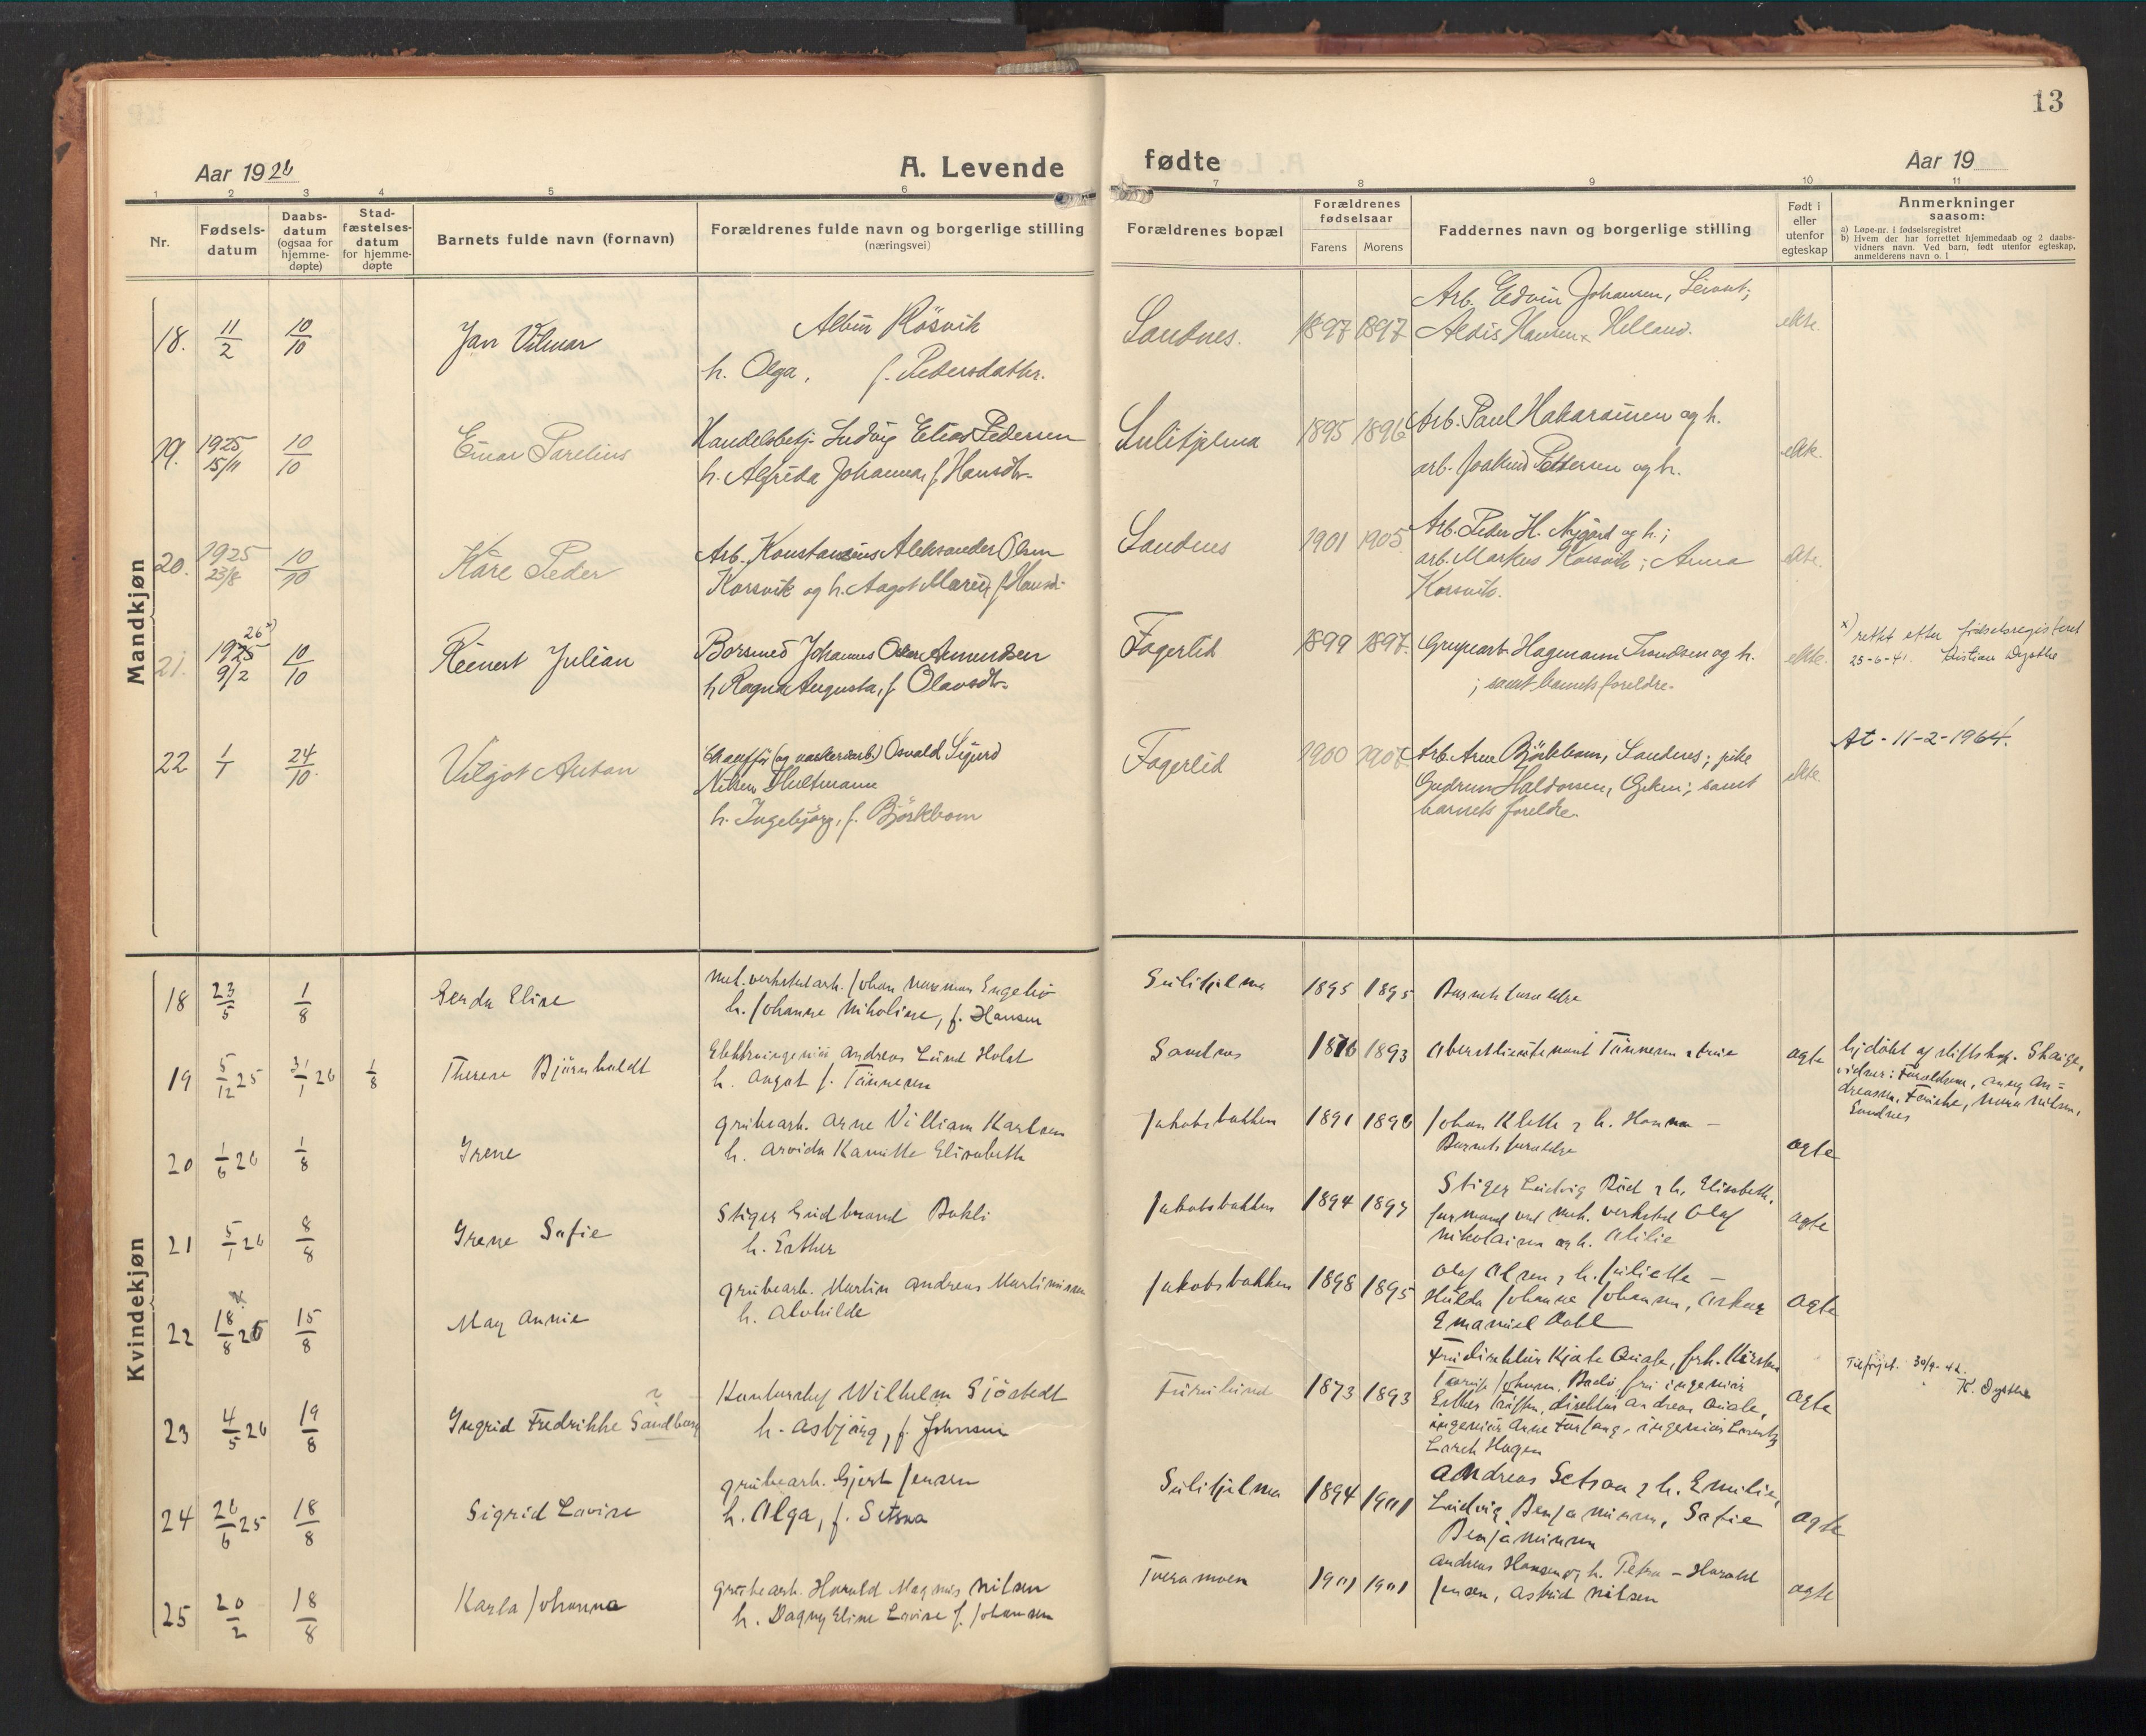 13
Aar 1926
A. Levende fødte
Aar 19
1 2 3 4 5 6 7 8 9 10 11
Nr.
Fødsels-
datum
Daabs-
datum
(ogsaa for
hjemme-
døpte)
Stad-
fæstelses-
datum
for hjemme-
døpte
Barnets fulde navn (fornavn)
Forældrenes fulde navn og borgerlige stilling
(næringsvei)
Forældrenes bopæl
Forældrenes
fødselsaar
Farens Morens
Faddernes navn og borgerlige stilling
Født i
eller
utenfor
egteskap
Anmerkninger
saasom:
a) Løpe-nr. i fødselsregistret
b) Hvem der har forrettet hjemmedaab og 2 daabs-
vidners navn. Ved barn, født utenfor egteskap,
anmelderens navn o. l
Mandkjøn
18. 11/2 10/10 Jan Vilmar
Albin Kösvik
h. Olga, f. Pedersdatter.
Sandnes. 1897 1897
Arb. Edvin Johansen,
Aldis Hansen, Helland.
ekte.
19. 1925 15/11 10/10 Einar Parelius
Handelsbetj. Ludvig Elias Pedersen
h. Alfrida Johanna, f. Hansdtr.
Sulitjelma 1895 1896
Arb. Paul Hakaransen og h.
arb. Joakim Pettersen og h.
ekte.
20. 1925 23/8 10/10 Kåre Peder
Arb. Konstansius Aleksander Olsen
Korsvik og h. Aagot Marie, f. Hansd.
Sandnes 1901 1905
Arb. Peder H. Nygård og h.;
arb. Markus Korsvik; Anna
Korsvik.
ekte.
21. 26 x) 1925 9/2 10/10 Reinert Julian
Borsmed Johannes Olsen Amundsen
h. Ragna Augusta, f. Olavsdtr.
Fagerlid 1899 1897.
Grupearb. Hagmann Trondsen og h.
; samt barnets foreldre.
ekte.
x) rettet efter fødselsregisteret
25-6-41. Kristian Dysthe
22 1/1 24/10. Vilgot Anton
Chauffør (og verkstedarb.) Osvald Sigurd
Nilsen Hultmann
h. Ingebjørg, f. Björkbom
Fagerlid 1900 1907
Arb. Arne Björkbom, Sandnes; pike
Gudrun Haldorsen, Gjken; samt
barnets foreldre.
ekte
At - 11-2-1964.
Kvindekjøn
18 23/5 1/8 Gerda Elise
Mek. verkstedarb. Johan Norman Engeliø
h. Johanne Nikoline, f. Hansen
Sulitjelma 1895 1895
Barnets forældre
19 5/12 25 31/1 26 1/8 Therese Bjørnholdt
Elektroingeniør Andreas Lund Holst
h. Aagot f. Tønnesen
Sandnes 1876 1893
Oberstløitenant Tønnesen & frue
ægte
hjdøbt af stiftskap. Skaige,
vidner: Forældrene, Anny An=
dreassen, Nora Nilsen,
Sandnes
20 1/6 26 1/8 Irene
Grubearb. Arne Villiam Karlsen
h. Arvida Kamitte Elisabeth
Jakobsbakken 1891 1896
Johan Klette & h. Hanna –
Barnets forældre
ægte
21 5/1 26 8/8 Irene Sofie
Stiger Gudbrand Bakli
h. Esther
Jakobsbakken 1894 1897
Stiger Ludvig Rød & h. Elisabeth.
formand ved mek. verksted Olaf
Nikolaisen og h. Otilie
ægte
22 18/8 25 15/8 May Annie
Grubearb. Martin Andreas Martinussen
h. Alvhilde
Jakobsbakken 1898 1895
Olaf Olsen & h. Juliette –
Hulda Johanne Johansen, Oskar
Emanuel Dahl
ægte
23 4/5 26 19/8 Ingrid Fredrikke Sandberg
Kontorchef Wilhelm Sjöstedt
h. Asbjørg, f. Johnsen
Furulund 1873 1893
Fru direktør Kjate Quale, frk. Kirsten
Bodø fru ingeniør
Esther direktør Andreas Quale,
ingeniør Arne Furfang, ingeniør Lorentz
Lorch Hagen
ægte
Tilføjet. 30/9-42.
K. Dysthe
24 26/6 25 18/8 Sigrid Lovise
Grubearb. Gjert Jensen
h. Olga, f. Setsaa
Sulitjelma 1894 1901
Andreas Setsaa & h. Emilie,
Ludvig Benjaminsen, Sofie
Benjaminsen
ægte
25 20/2 18/8 Karla Johanna
Grubearb. Harald Magnus Nilsen
h. Dagny Eline Lovise f. Johansen
Tveraamoen 1901 1901
Andreas Hansen og h. Petra – Harald
Jensen, Astrid Nilsen
ægte